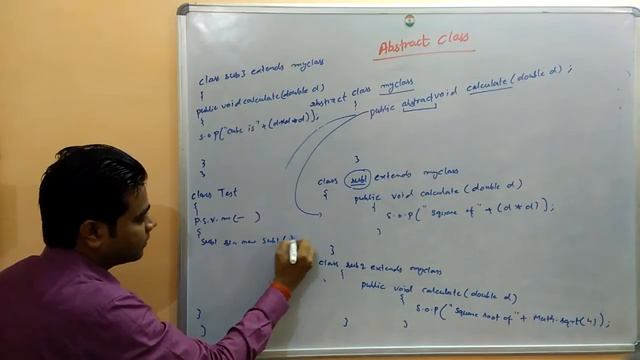 Abstract Class
class sub3 extends myclass
{
public void calculate(double d)
{
S.O.P("cube is"+(d*d*d));
}
}
abstract class myclass
{
public abstract void calculate(double d);
}
class sub1 extends myclass
{
public void calculate(double d)
{
S.O.P("Square of"+(d*d));
}
}
class sub2 extends myclass
{
public void calculate(double d)
{
S.O.P("Square root of"+ Math.sqrt(4));
}
}
class Test
{
P.S.V.m(— )
{
Sub1 = new Sub1()
}
}